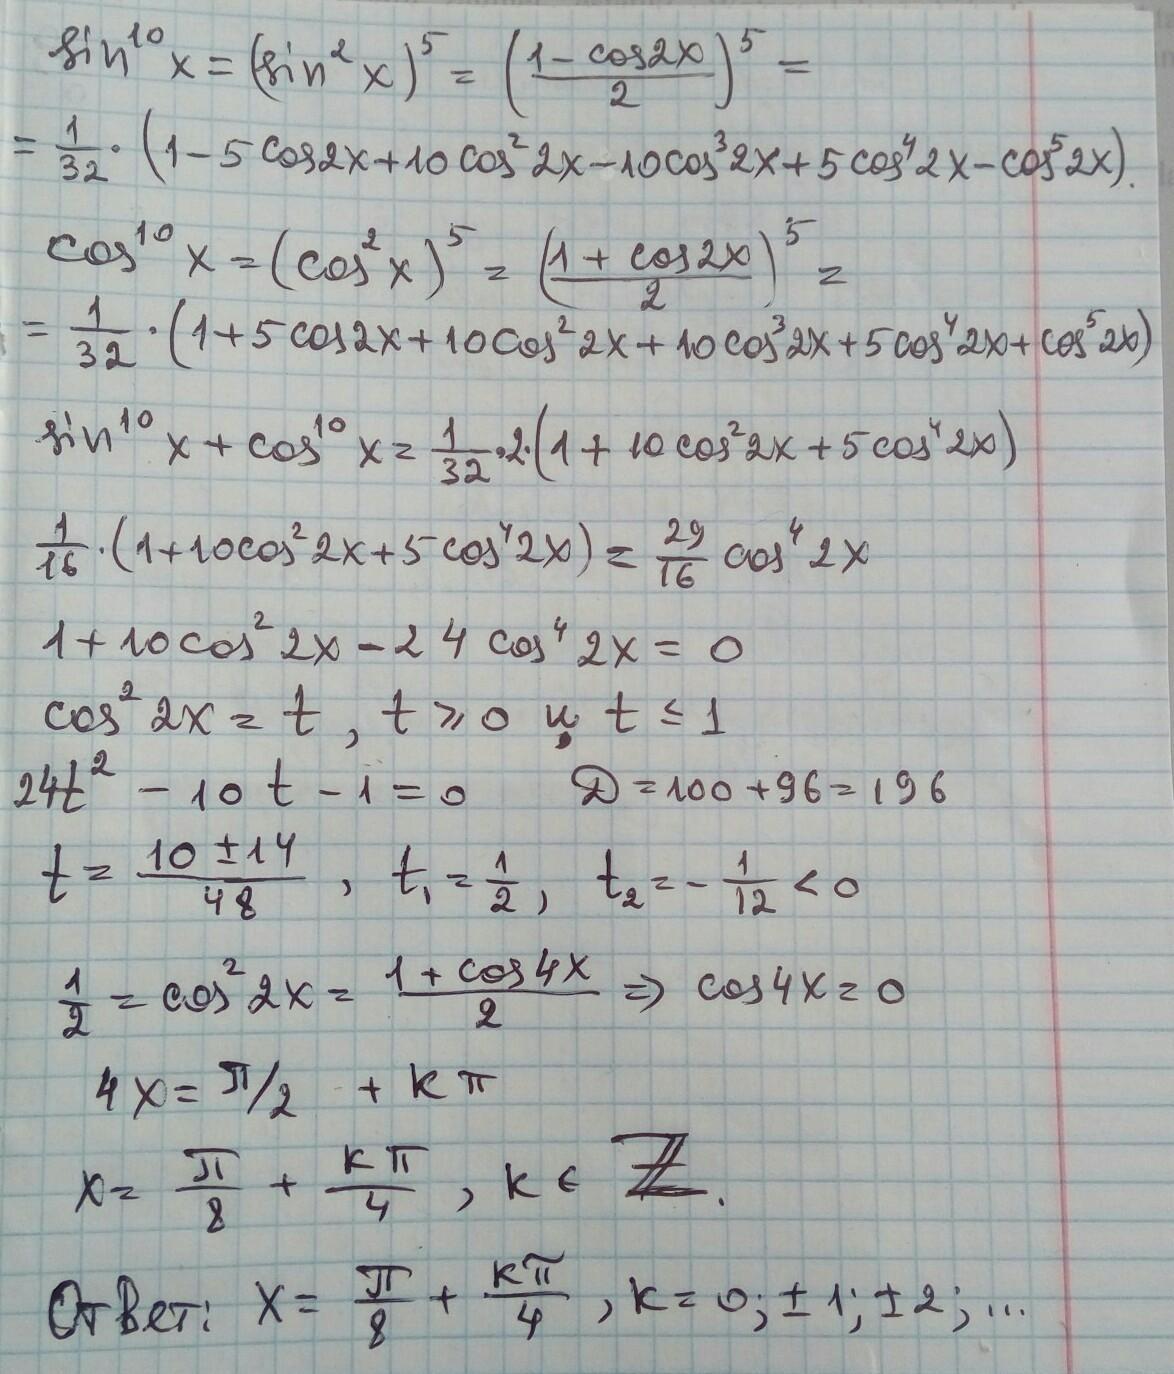 sin¹⁰x = (sin²x)⁵ = ((1 - cos2x)/2)⁵ =
= 1/32 · (1 - 5cos2x + 10cos²2x - 10cos³2x + 5cos⁴2x - cos⁵2x).
cos¹⁰x = (cos²x)⁵ = ((1 + cos2x)/2)⁵ =
= 1/32 · (1 + 5cos2x + 10cos²2x + 10cos³2x + 5cos⁴2x + cos⁵2x)
sin¹⁰x + cos¹⁰x = 1/32 · 2 · (1 + 10cos²2x + 5cos⁴2x)
1/16 · (1 + 10cos²2x + 5cos⁴2x) = 29/16 cos⁴2x
1 + 10cos²2x - 24cos⁴2x = 0
cos²2x = t, t ⩾ 0 и t ≤ 1
24t² - 10t - 1 = 0 D = 100 + 96 = 196
t = (10 ± 14)/48, t₁ = 1/2, t₂ = - 1/12 < 0
1/2 = cos²2x = (1 + cos4x)/2 ⇒ cos4x = 0
4x = π/2 + kπ
x = π/8 + kπ/4, k ∈ ℤ.
Ответ: x = π/8 + kπ/4, k = 0; ±1; ±2; ...